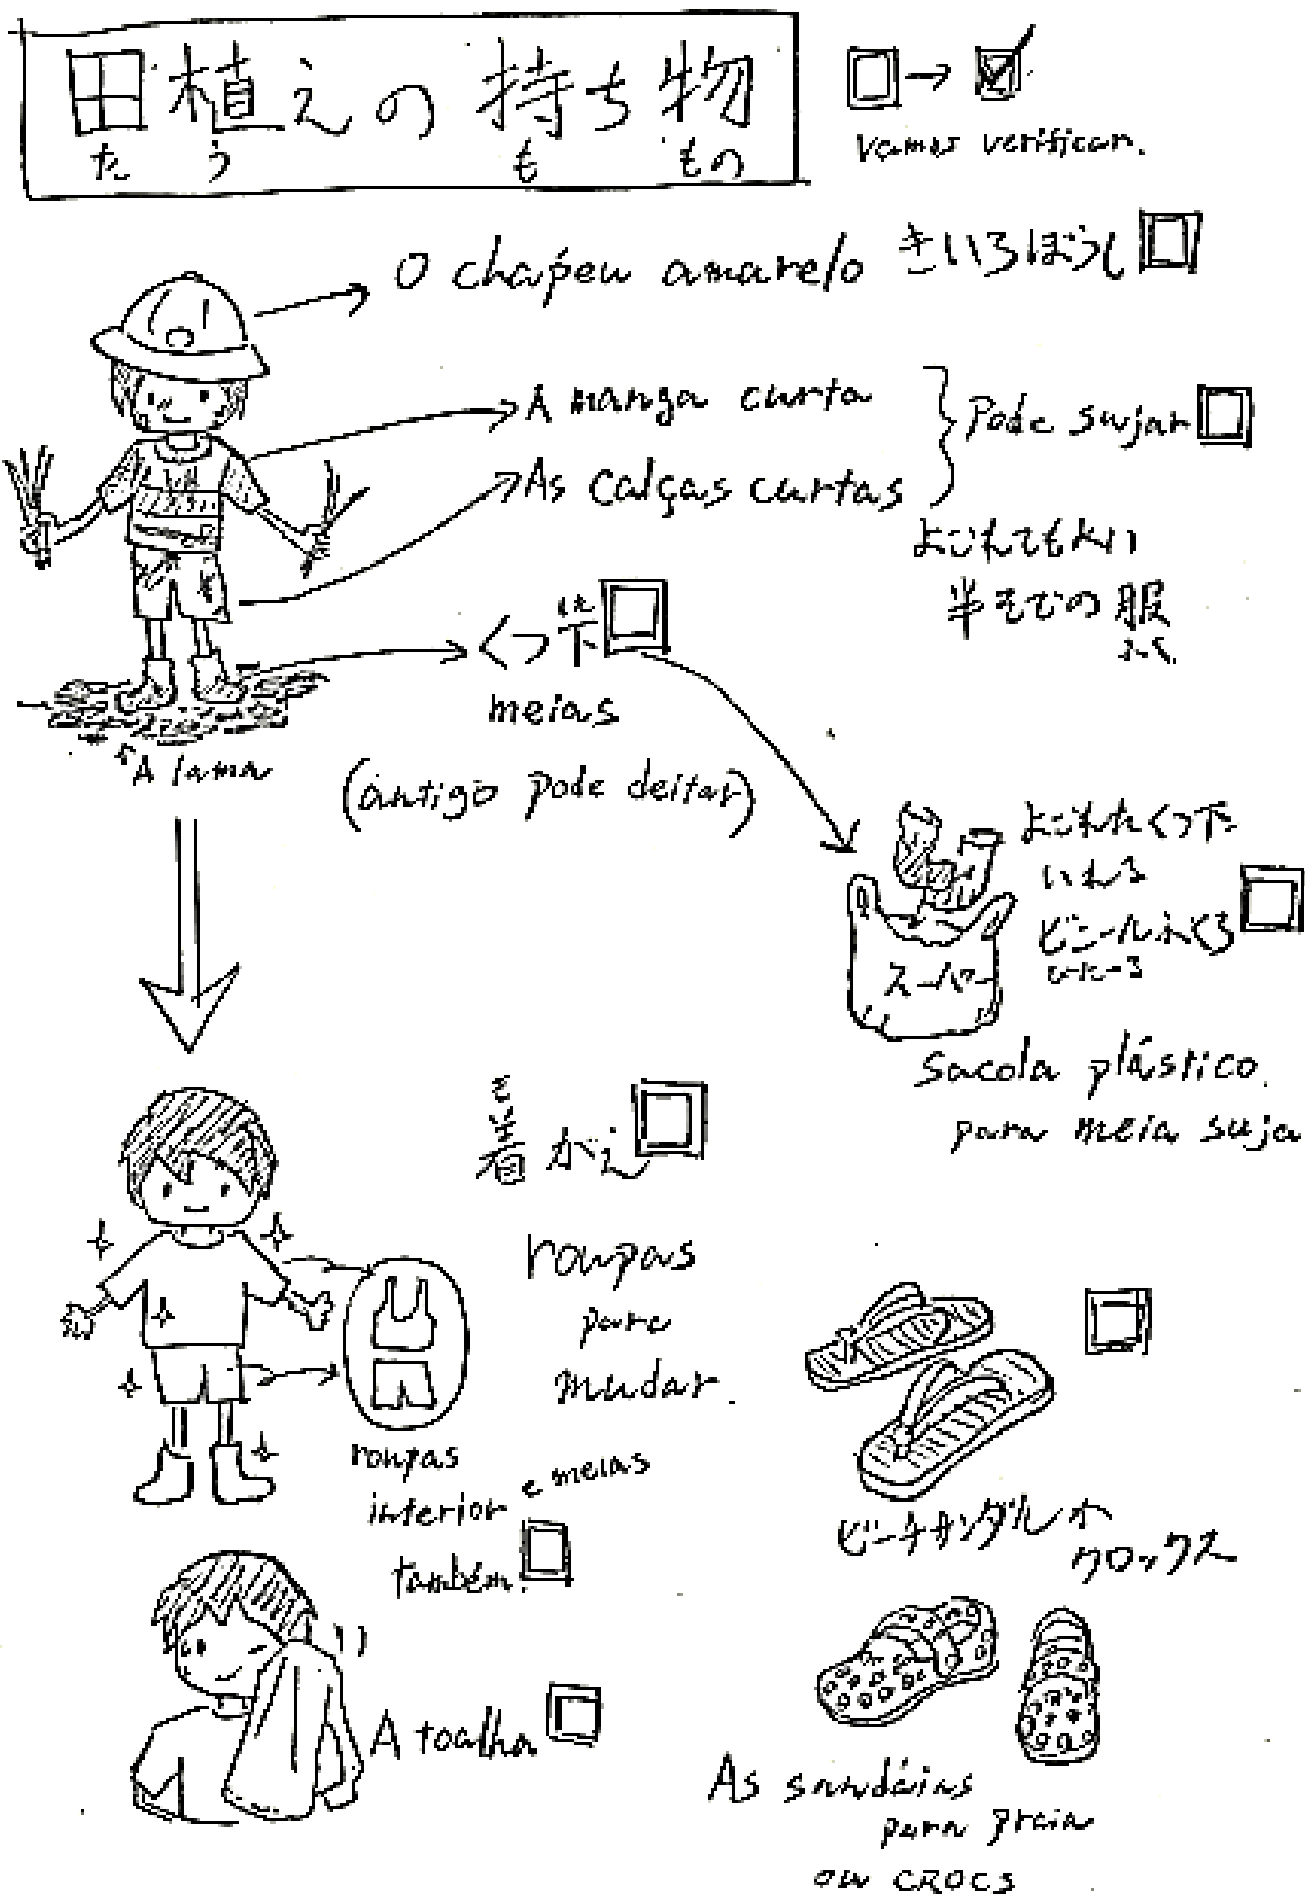 田植えの持ち物
た う も もの
vamos verificar.
O chapéu amarelo きいろぼうし
A manga curta
As calças curtas
Pode sujar
よごれてもよい
半そでの服
ふく
くつ下
した
meias
(antigo pode deitar)
A lama
よごれたくつ下
いれる
ビニールふくろ
スーパー
sacola plástico
para meia suja
き
着がえ
roupas
para
mudar.
roupas
inferior e meias
também.
ビーチサンダルか
クロックス
A toalha
As sandáias
para praia
ou CROCS